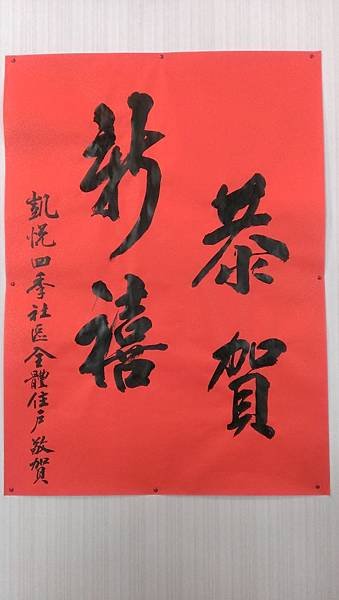 恭賀
新禧
凱悅四季社區全體住戶敬賀